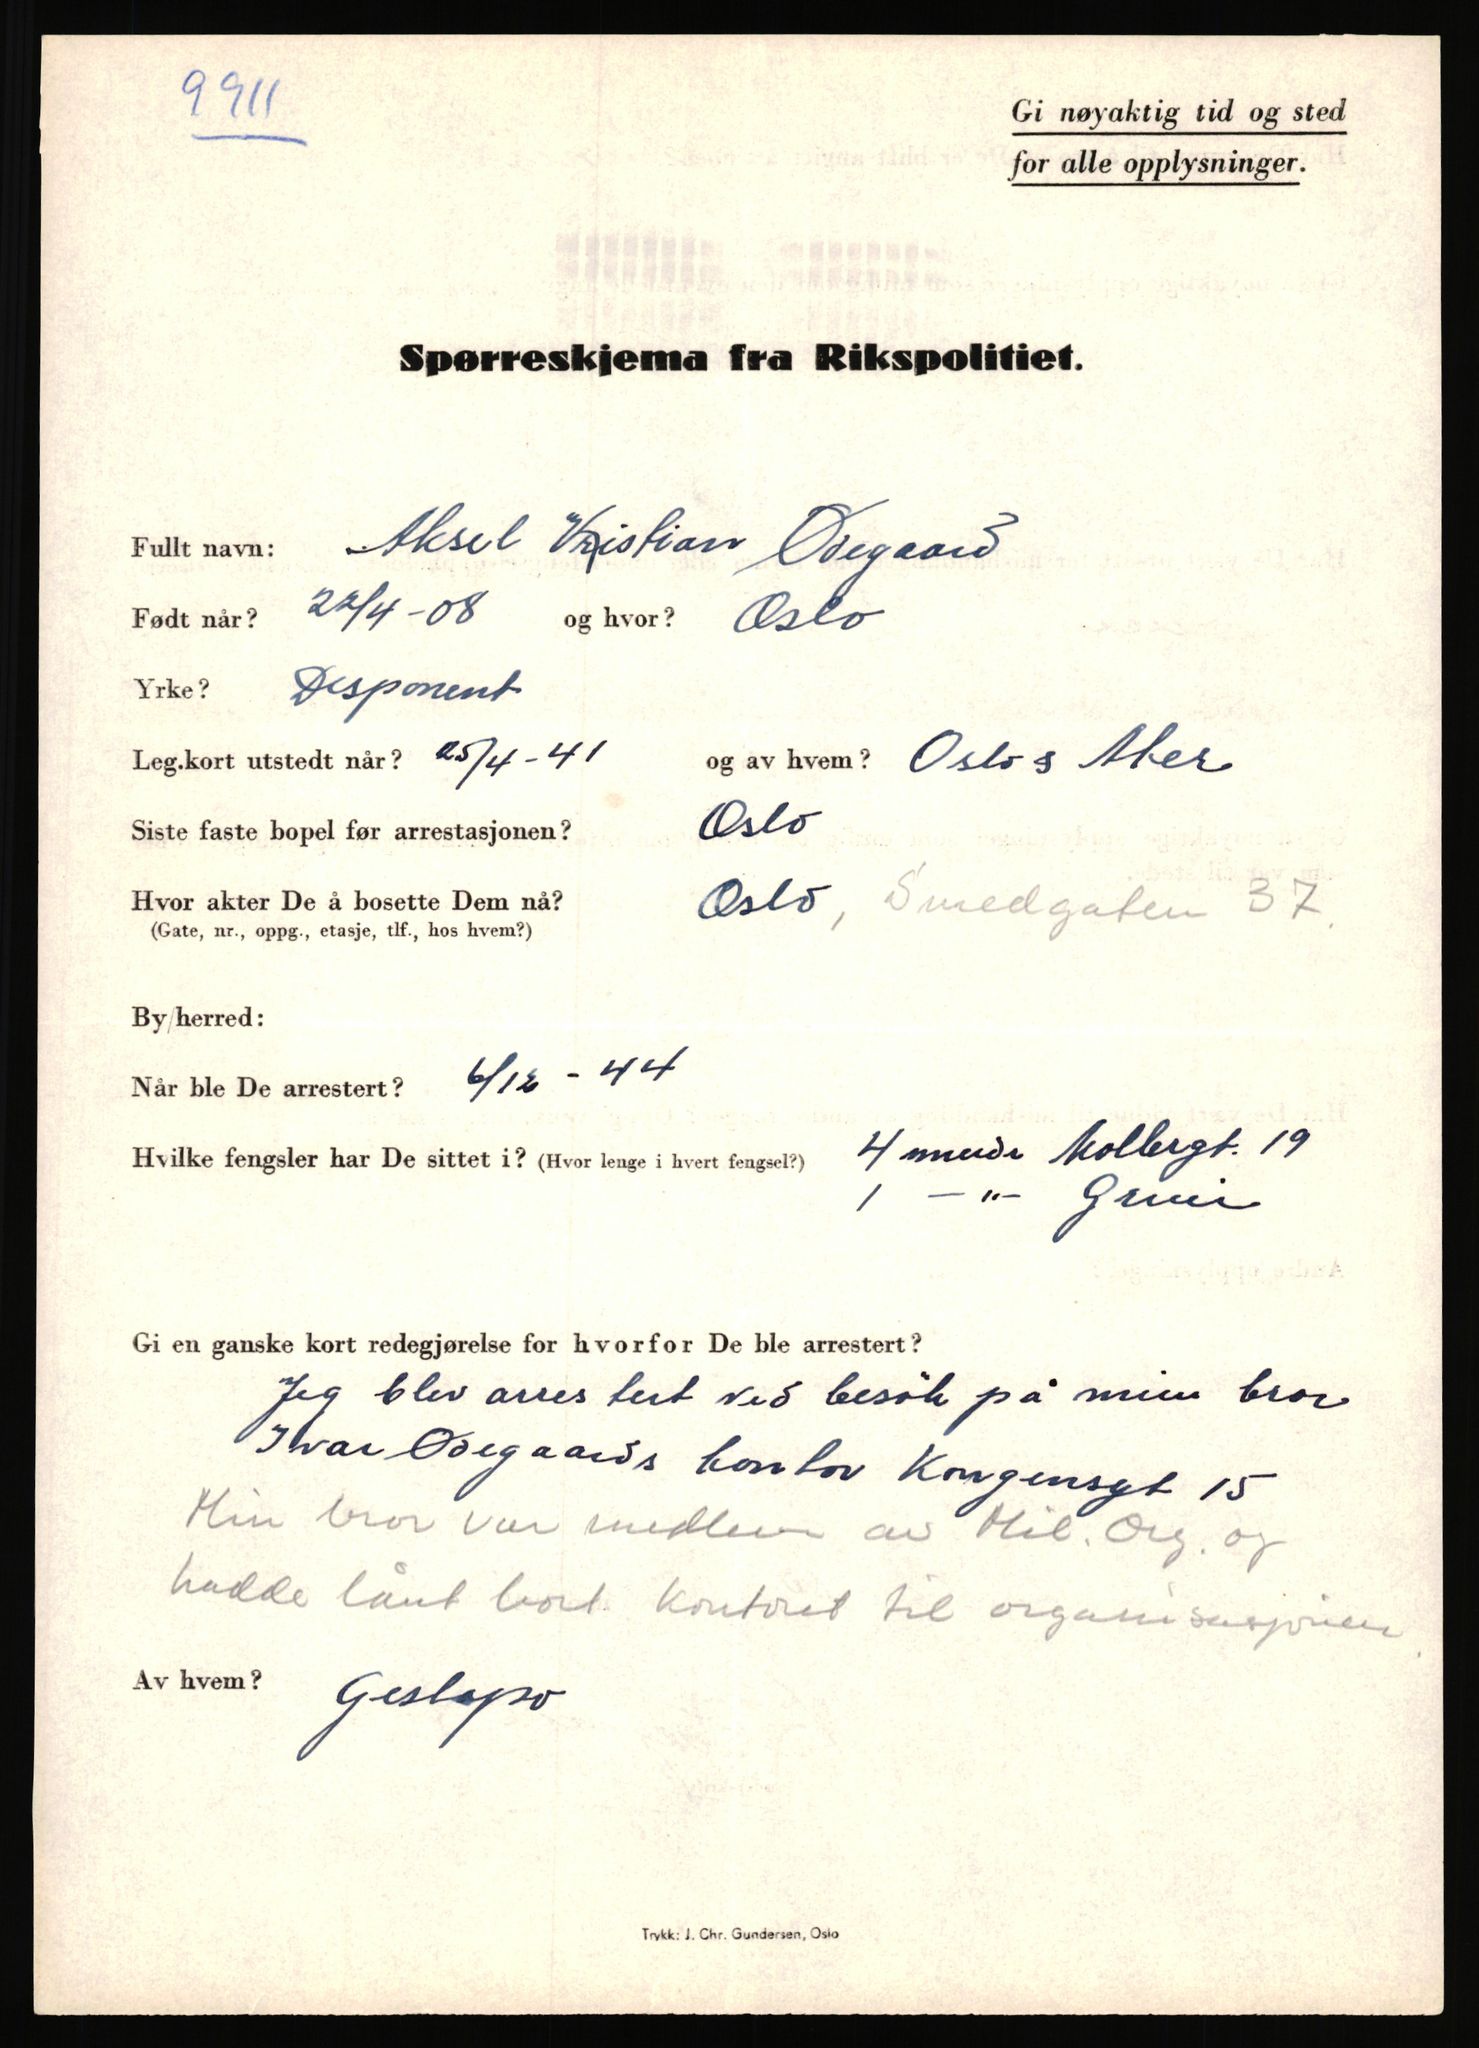 9911
Gi nøyaktig tid og sted
for alle opplysninger.
Spørreskjema fra Rikspolitiet.
Fullt navn: Aksel Kristian Ødegaard
Født når? 22/4-08 og hvor? Oslo
Yrke? Disponent
Leg.kort utstedt når? 25/4-41 og av hvem? Oslo & Aker
Siste faste bopel før arrestasjonen? Oslo
Hvor akter De å bosette Dem nå? Oslo, Smedgaten 37.
(Gate, nr., oppg., etasje, tlf., hos hvem?)
By/herred:
Når ble De arrestert? 6/12-44
Hvilke fengsler har De sittet i? (Hvor lenge i hvert fengsel?) 4 mndr Møllergt. 19
1 -"- Grini
Gi en ganske kort redegjørelse for hvorfor De ble arrestert?
Jeg blev arrestert ved besök på min bror
Ivar Ødegaards kontor Kongensgt 15
Min bror var medlem av Mil. Org. og
hadde lånt bort kontoret til organisasjonen.
Av hvem? Gestapo
Trykk: J. Chr. Gundersen, Oslo